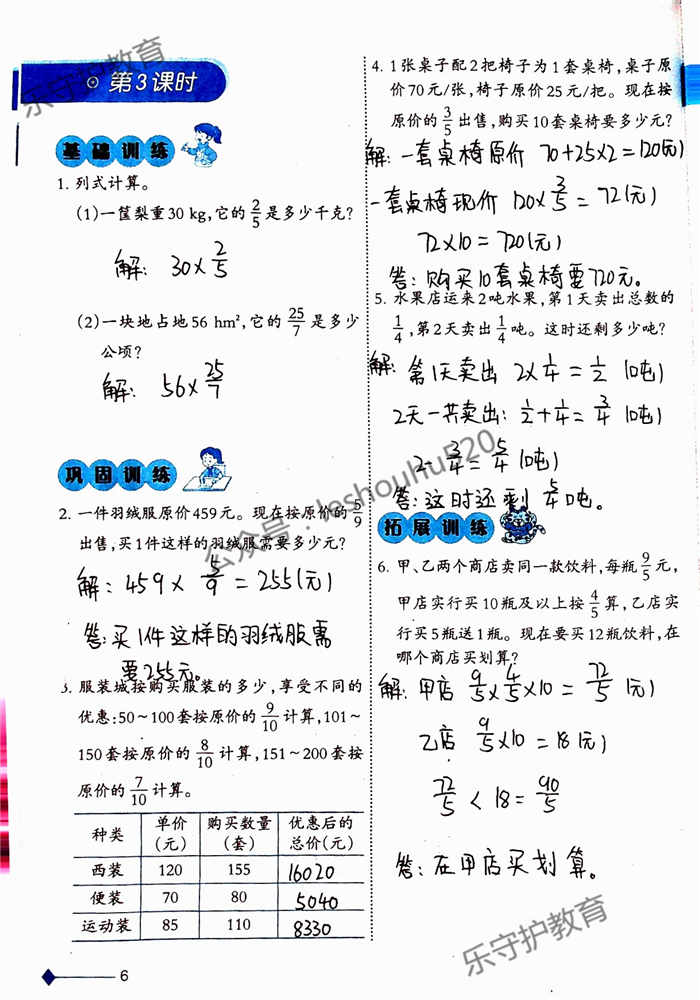 第3课时
基础训练
1. 列式计算。
(1)一筐梨重30 kg,它的2/5是多少千克?
解: 30×2/5
(2)一块地占地56 hm²,它的25/7是多少
公顷?
解: 56×25/7
巩固训练
2. 一件羽绒服原价459元。现在按原价的5/9
出售,买1件这样的羽绒服需要多少元?
解: 459×5/9=255(元)
答:买1件这样的羽绒服需
要255元。
3. 服装城按购买服装的多少,享受不同的
优惠:50~100套按原价的9/10计算,101~
150套按原价的8/10计算,151~200套按
原价的7/10计算。
种类 单价(元) 购买数量(套) 优惠后的总价(元)
西装 120 155 16020
便装 70 80 5040
运动装 85 110 8330
6
4. 1张桌子配2把椅子为1套桌椅,桌子原
价70元/张,椅子原价25元/把。现在按
原价的3/5出售,购买10套桌椅要多少元?
解:一套桌椅原价 70+25×2=120(元)
一套桌椅现价 120×3/5=72(元)
72×10=720(元)
答:购买10套桌椅要720元。
5. 水果店运来2吨水果,第1天卖出总数的
1/4,第2天卖出1/4吨。这时还剩多少吨?
解: 第1天卖出 2×1/4=1/2(吨)
2天一共卖出: 1/2+1/4=3/4(吨)
2-3/4=5/4(吨)
答:这时还剩5/4吨。
拓展训练
6. 甲、乙两个商店卖同一款饮料,每瓶9/5元,
甲店实行买10瓶及以上按4/5算,乙店实
行买5瓶送1瓶。现在要买12瓶饮料,在
哪个商店买划算?
解:甲店 9/5×4/5×10=72/5(元)
乙店 9/5×10=18(元)
72/5<18=90/5
答:在甲店买划算。
乐守护教育
公众号:leshouhu520
乐守护教育